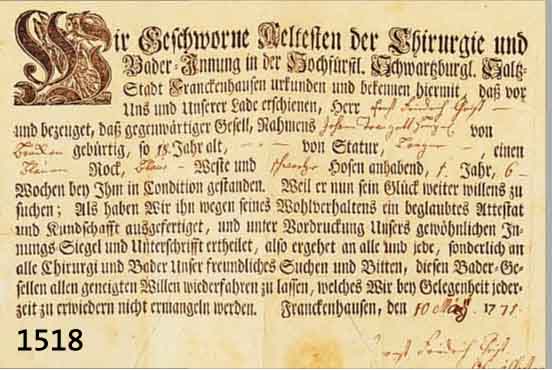 Wir Geschworne Aeltesten der Chirurgie und
Bader-Innung in der Hochfürstl. Schwartzburgl. Saltz-
Stadt Franckenhausen urkunden und bekennen hiermit, daß vor
Uns und Unserer Lade erschienen, Herr Ernst Friedrich Geist
und bezeuget, daß gegenwärtiger Gesell, Nahmens von
gebürtig, so 18 Jahr alt, von Statur, einen
Rock, Weste und Hosen anhabend, 1. Jahr, 6
Wochen bey Ihm in Condition gestanden. Weil er nun sein Glück weiter willens zu
suchen; Als haben Wir ihn wegen seines Wohlverhaltens ein beglaubtes Attestat
und Kundschafft ausgefertiget, und unter Vordruckung Unsers gewöhnlichen In-
nungs-Siegel und Unterschrifft ertheilet, also ergehet an alle und jede, sonderlich an
alle Chirurgi und Bader Unser freundliches Suchen und Bitten, diesen Bader-Ge-
sellen allen geneigten Willen wiederfahren zu lassen, welches Wir bey Gelegenheit jeder-
zeit zu erwiedern nicht ermangeln werden. Franckenhausen, den 10 May. 1771.
Ernst Friedrich Geist
1518